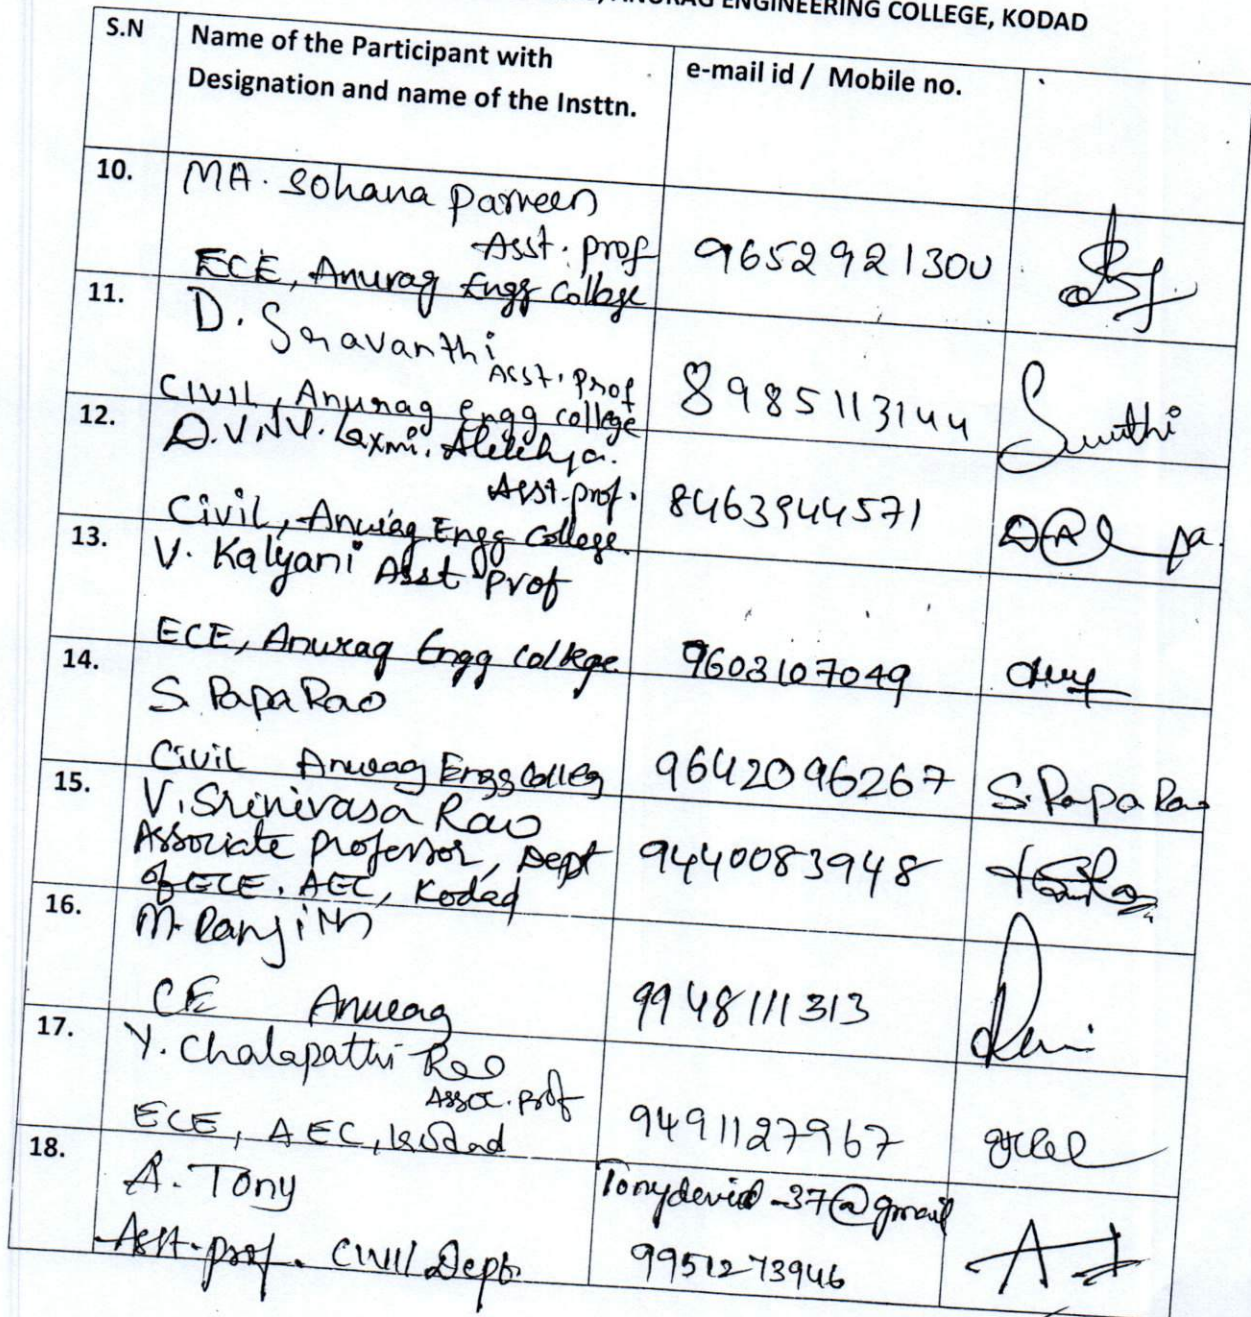 ANURAG ENGINEERING COLLEGE, KODAD
S.N
Name of the Participant with
Designation and name of the Insttn.
e-mail id / Mobile no.
10.
MA. Sohana Parveen
Asst. prof
ECE, Anurag Engg College
9652921300
11.
D. Sravanthi
Asst. Prof
Civil, Anurag engg college
8985113144
12.
D.V.N.V. Laxmi. Alekhya.
Asst. prof.
Civil, Anurag Engg College.
8463944571
13.
V. Kalyani Asst Prof
ECE, Anurag Engg College
9603107049
14.
S. Papa Rao
Civil Anurag Engg Colleg
9642096267
S. Papa Rao
15.
V. Srinivasa Rao
Associate professor, Dept
of ECE, AEC, Kodad
9440083948
16.
M. Ranjith
CE Anurag
9948111313
17.
Y. Chalapathi Rao
Assoc. prof
ECE, AEC, Kodad
9491127967
18.
A. Tony
Asst. prof. Civil Dept.
Tonydevid_37@gmail
9951273946